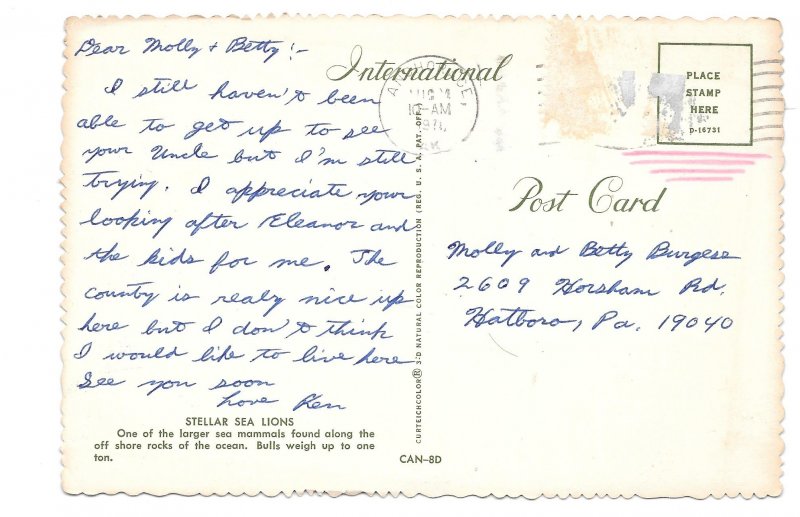 Dear Molly & Betty!-
I still haven't been
able to get up to see
your Uncle but I'm still
trying. I appreciate your
looking after Eleanor and
the kids for me. The
country is realy nice up
here but I don't think
I would like to live here
See you soon
Love Ken
STELLAR SEA LIONS
One of the larger sea mammals found along the
off shore rocks of the ocean. Bulls weigh up to one
ton.
CAN-8D
CURTEICHCOLOR® 3-D NATURAL COLOR REPRODUCTION (REG. U. S. A. PAT. OFF.)
International
AM
PLACE
STAMP
HERE
D-16731
Post Card
Molly and Betty Burgess
2609 Horsham Rd.
Hatboro, Pa. 19040